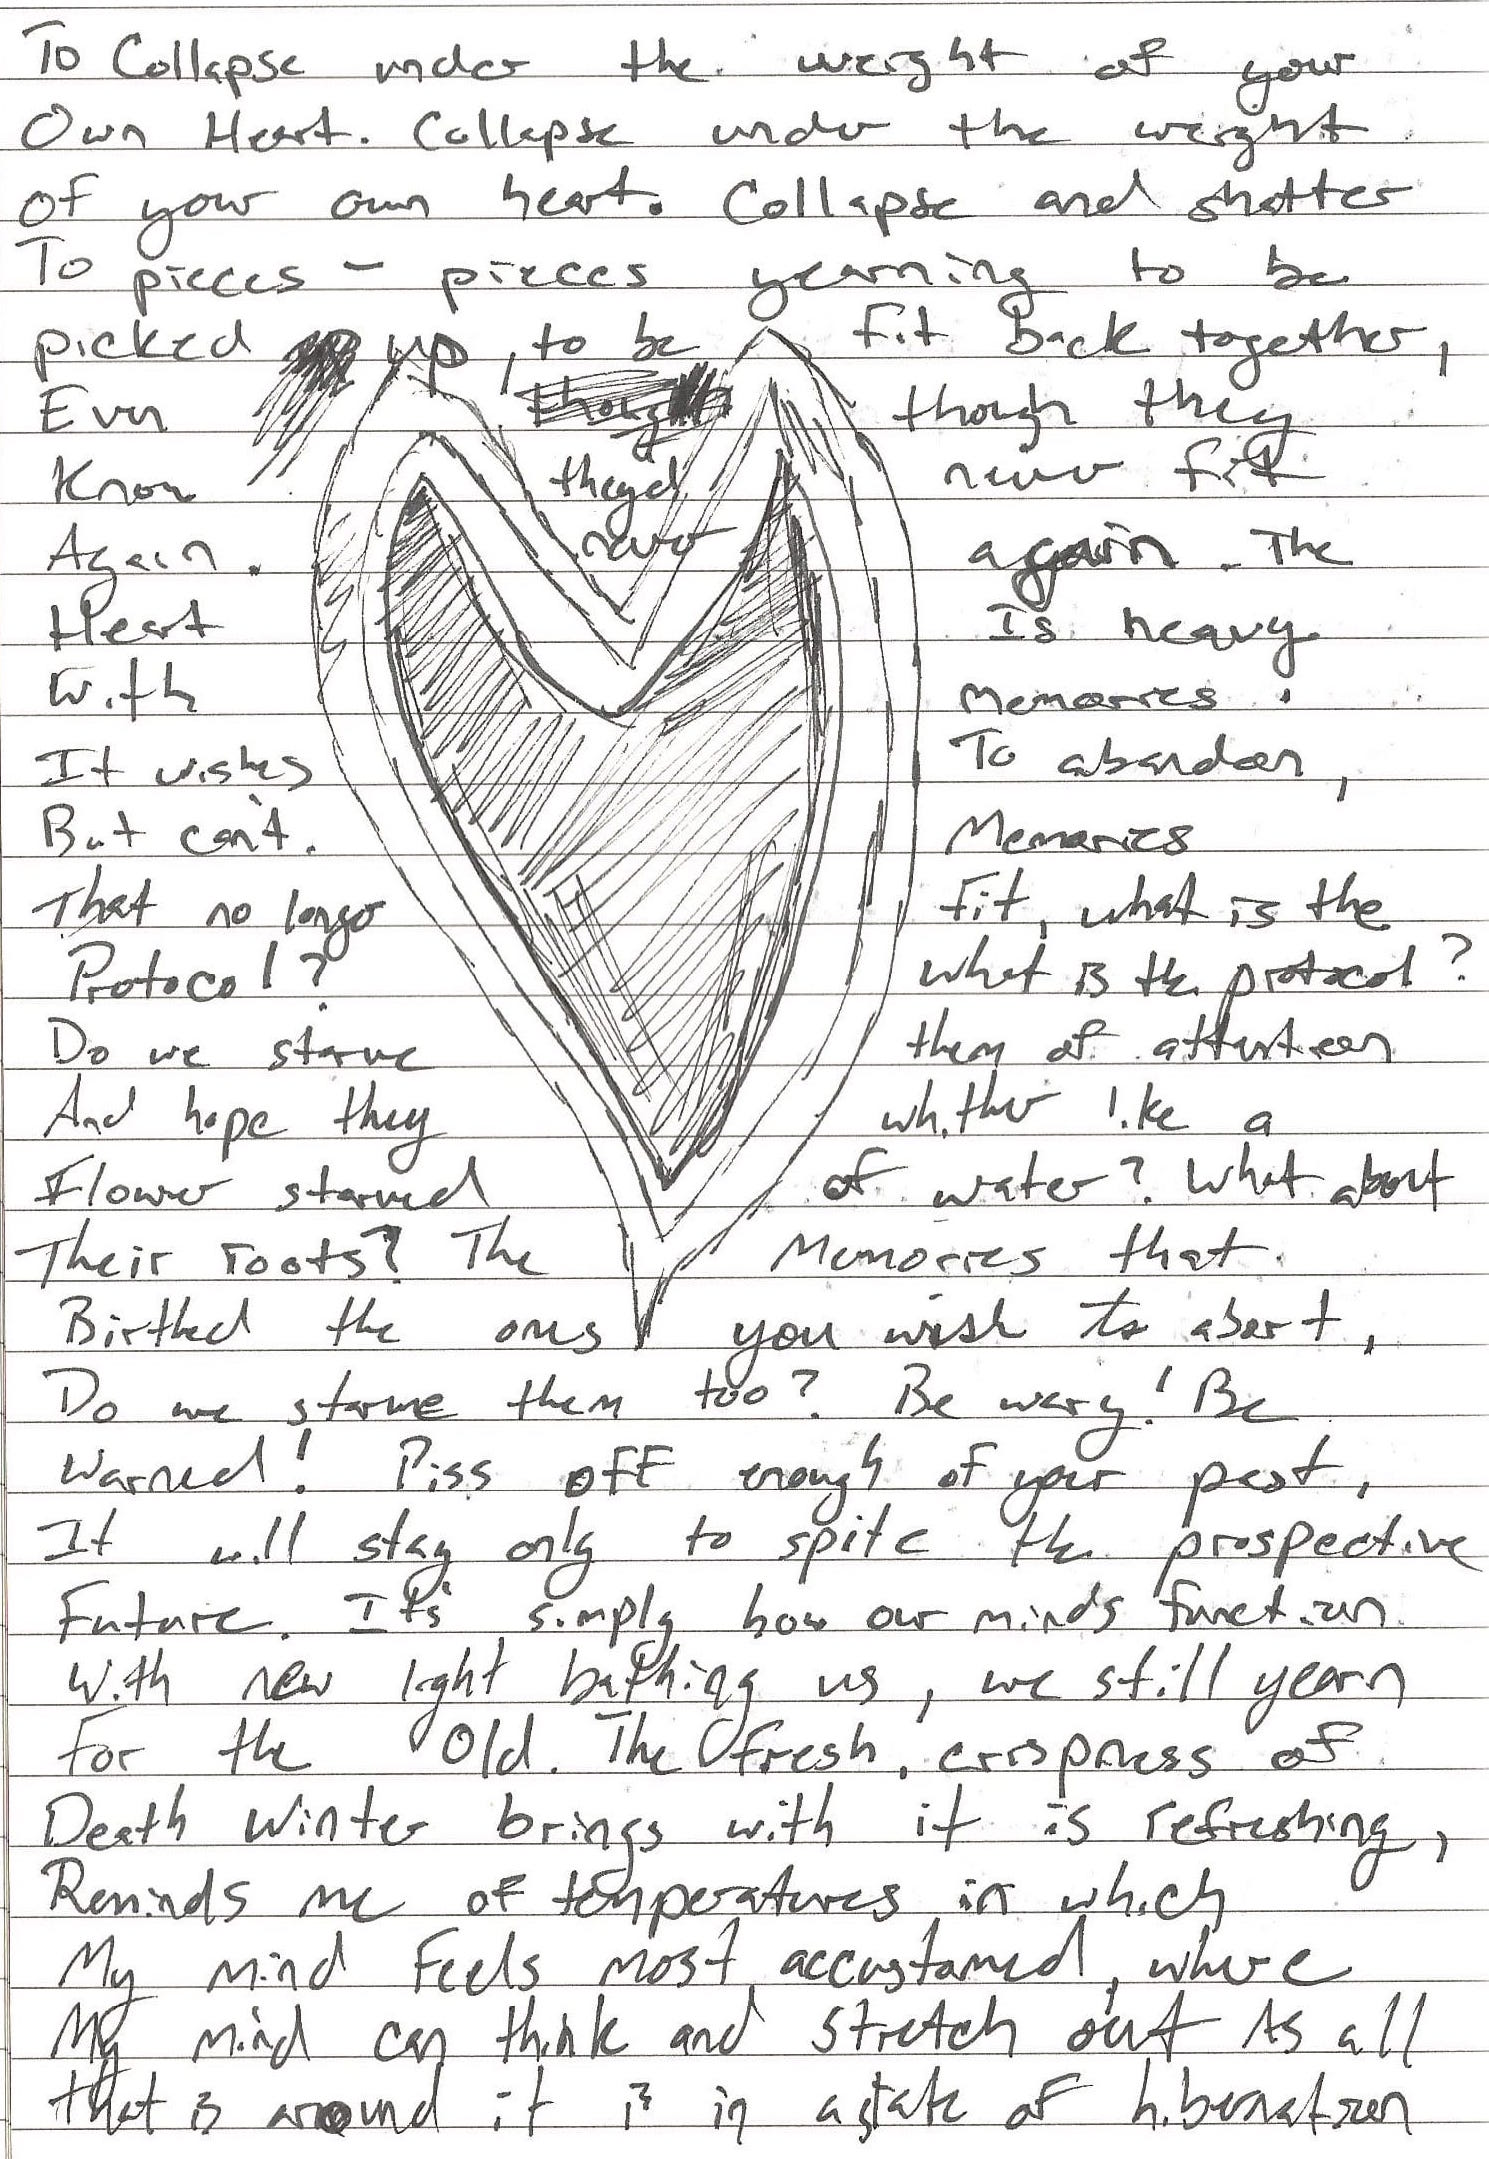 To Collapse under the weight of your
Own Heart. Collapse under the weight
of your own heart. Collapse and shatter
To pieces - pieces yearning to be
picked up, to be fit back together,
Even though though they
Know they'd never fit
Again. never again. The
Heart Is heavy
With memories.
It wishes To abandon,
But can't. Memories
That no longer Fit, what is the
Protocol? what is the protocol?
Do we starve them of attention
And hope they whither like a
Flower starved of water? What about
Their roots? The Memories that
Birthed the ones you wish to abort,
Do we starve them too? Be wary! Be
Warned! Piss off enough of your past,
It will stay only to spite the prospective
Future. It's simply how our minds function.
With new light bathing us, we still yearn
For the Old. The fresh, crispness of
Death Winter brings with it is refreshing,
Reminds me of temperatures in which
My mind feels most accustomed, where
My mind can think and stretch out As all
that is around it is in a state of hibernation